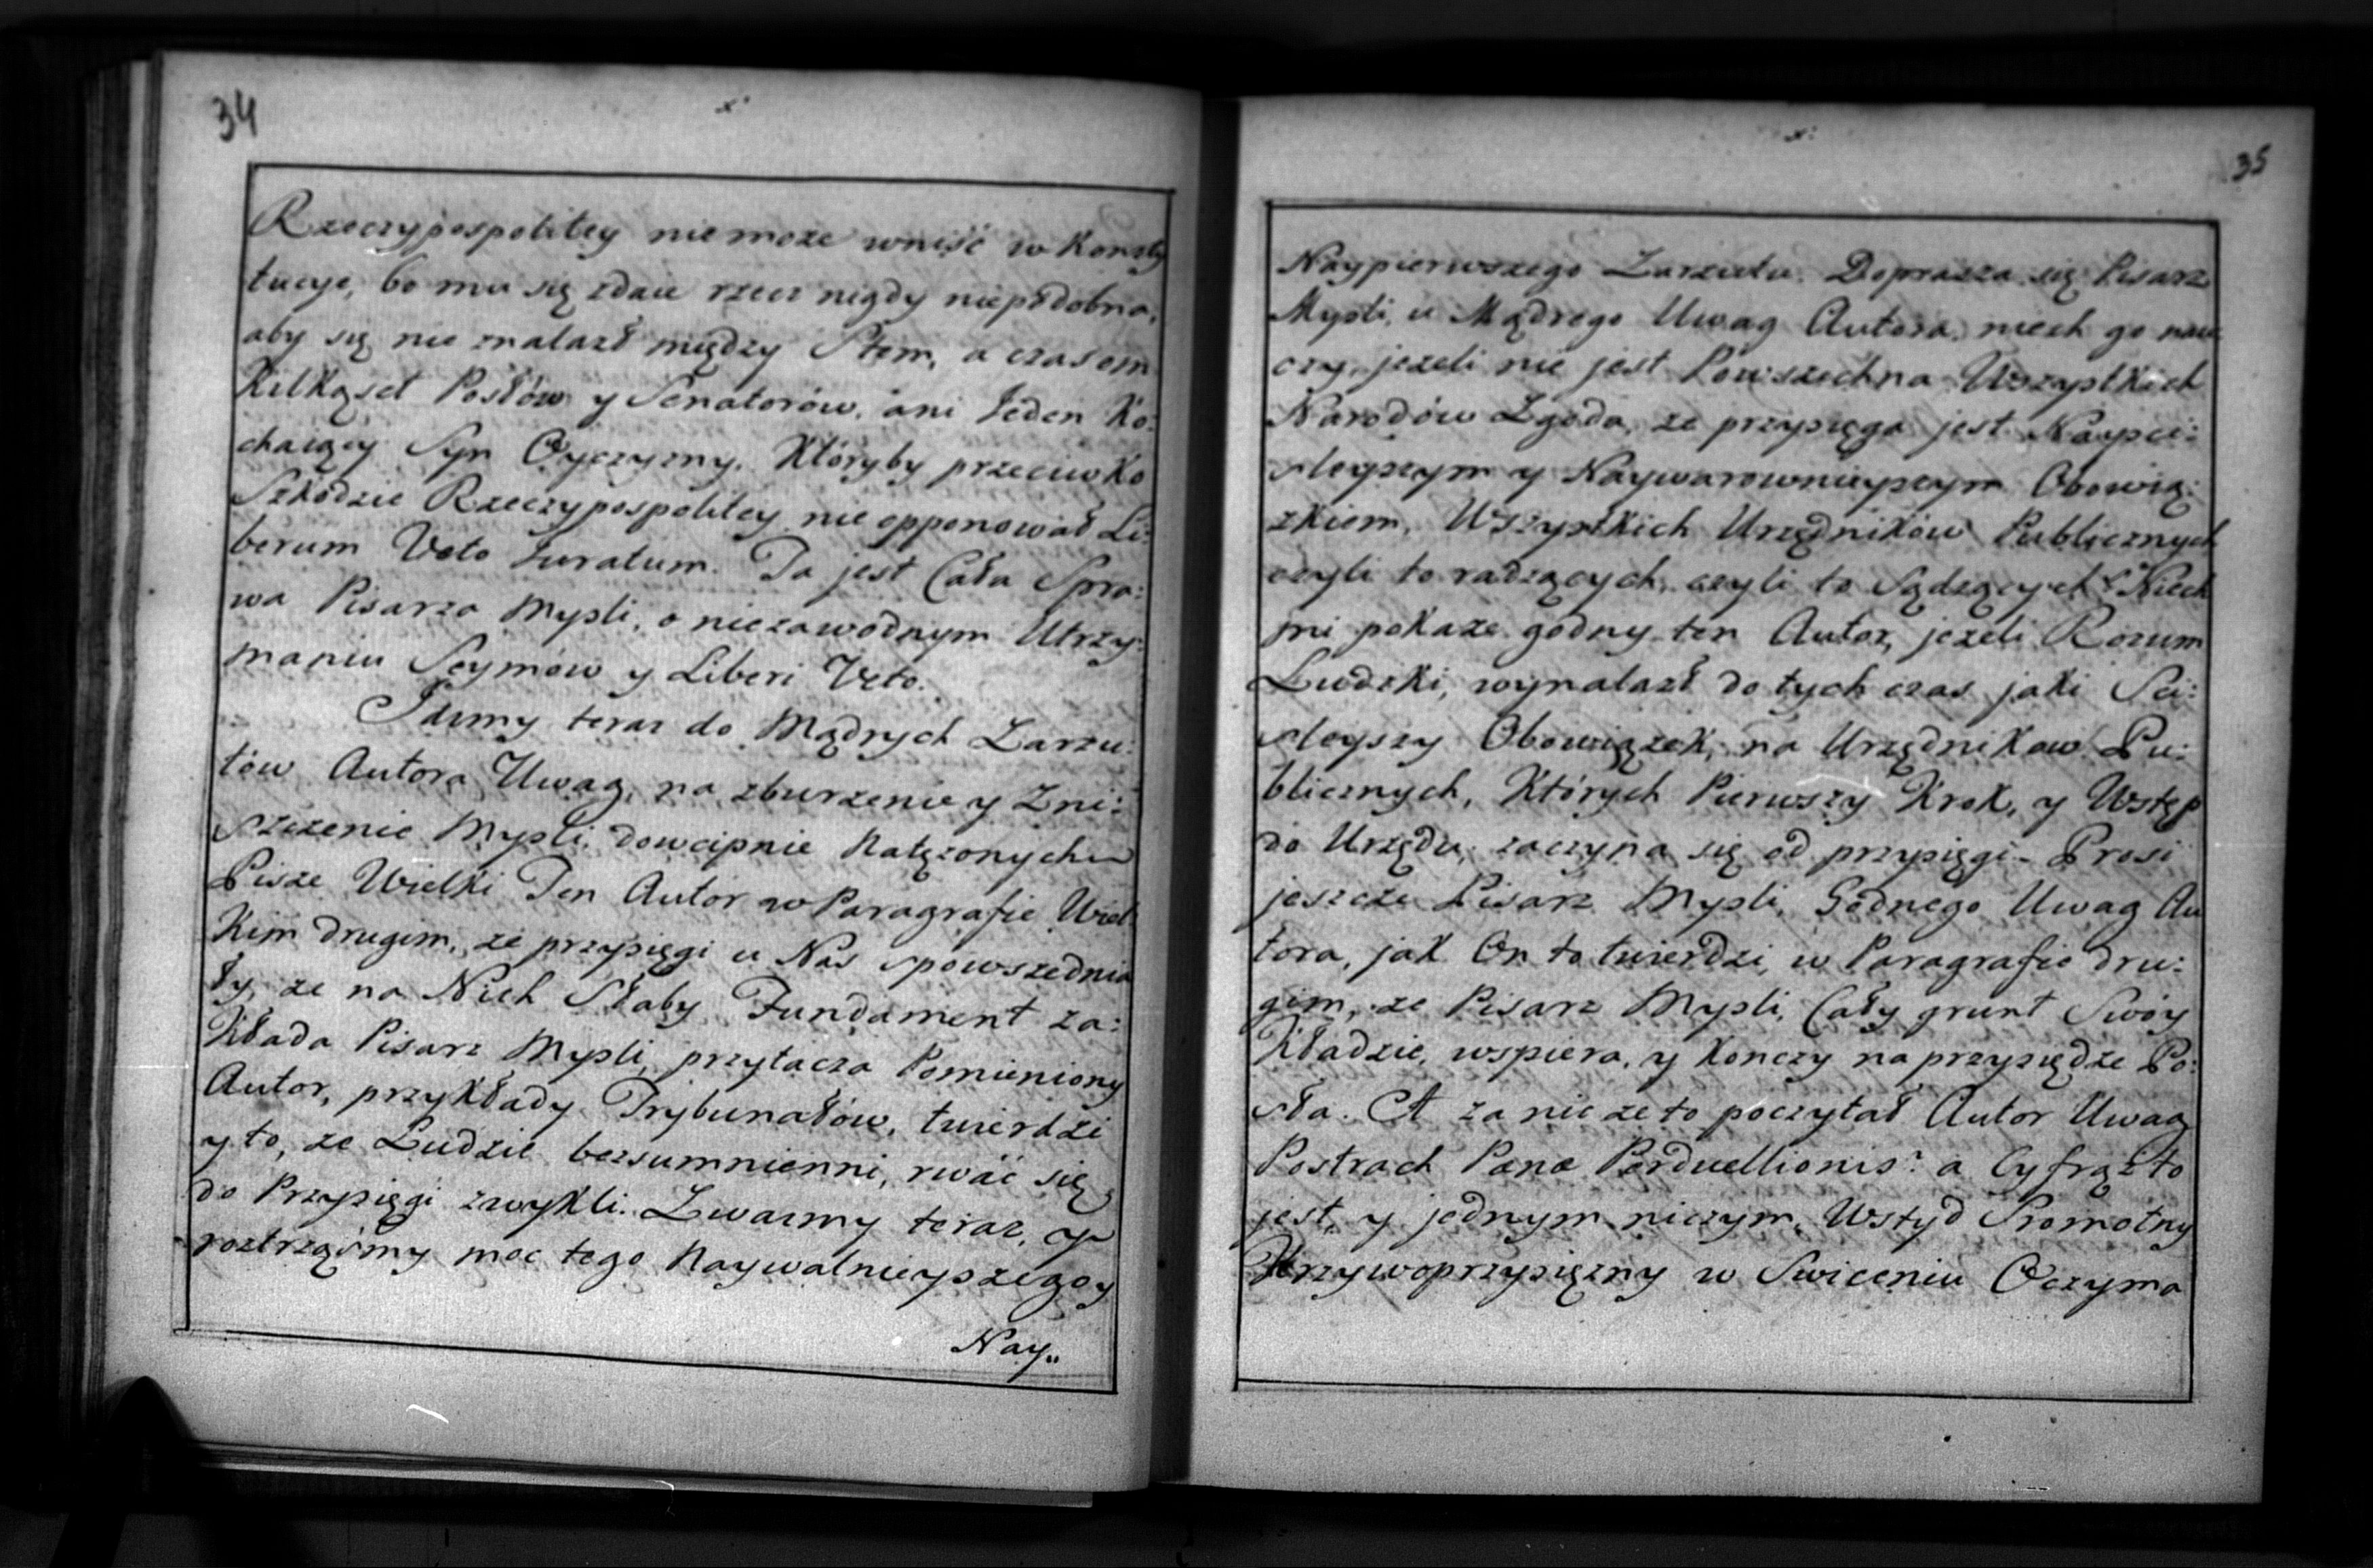 34
Rzeczypospolitey niemoże wniść w Konsty
tucye, bo mu się zdaie rzecz nigdy niepodobna,
aby się nie znalazł między Stem, a czasem
Kilkąset Posłów y Senatorów, ani Jeden Ko:
chaiący Syn Oyczyzny, Któryby przeciwko
Szkodzie Rzeczypospolitey nie opponował Li:
berum Veto Juratum. Ta jest Cała Spra:
wa Pisarza Mysli, o niezawodnym Utrzy:
maniu Seymów y Liberi Veto.
Idzmy teraz do Mądrych Zarzu:
tów Autora Uwag, na zburzenie y Zni:
szczenie Mysli, dowcipnie Natęzonych
Pisze Wielki Ten Autor w Paragrafie Wiel
Kim drugim, ze przysięgi u Nas spowszednia
ły, ze na Nich Słaby Fundament za:
Kłada Pisarz Mysli, przytacza Pomieniony
Autor, przykłady Trybunałów, twierdzi
y to, ze Ludzie bezsumnienni, rwać się
do Przysięgi zwykli. Zwazmy teraz, y
roztrząsmy moc tego Naywalnieyszego y
Nay„
35
Naypierwszego Zarzutu. Doprasza się Pisarz
Mysli, u Mądrego Uwag Autora, niech go nau
czy, jezeli nie jest Powszechna Wszystkich
Narodów Zgoda, ze przysięga jest Nayści:
sleyszym y Naywarownieyszym Obowią:
zkiem, Wszystkich Urzędników Publicznych
czyli to radzących, czyli to Sądzących? Niech
mi pokaze godny ten Autor, jezeli Rozum
Ludzki, wynalazł do tych czas jaki Sci:
sleyszy Obowiązek, na Urzędnikow Pu:
blicznych, Których Pierwszy Krok, y Wstęp
do Urzędu, zaczyna się od przysięgi - Prosi
jeszcze Pisarz Mysli, Godnego Uwag Au
tora, jak On to twierdzi, w Paragrafie dru:
gim, ze Pisarz Mysli, Cały grunt Swóy
Kładzie, wspiera, y Konczy na przysiędze Po:
sła. A za nic ze to poczytał Autor Uwag
Postrach Pœnæ Perduellionis? a Cyfrąz to
jest, y jednym niczym, Wstyd Sromotny
Krzywoprzysięzny w Swieceniu Oczyma